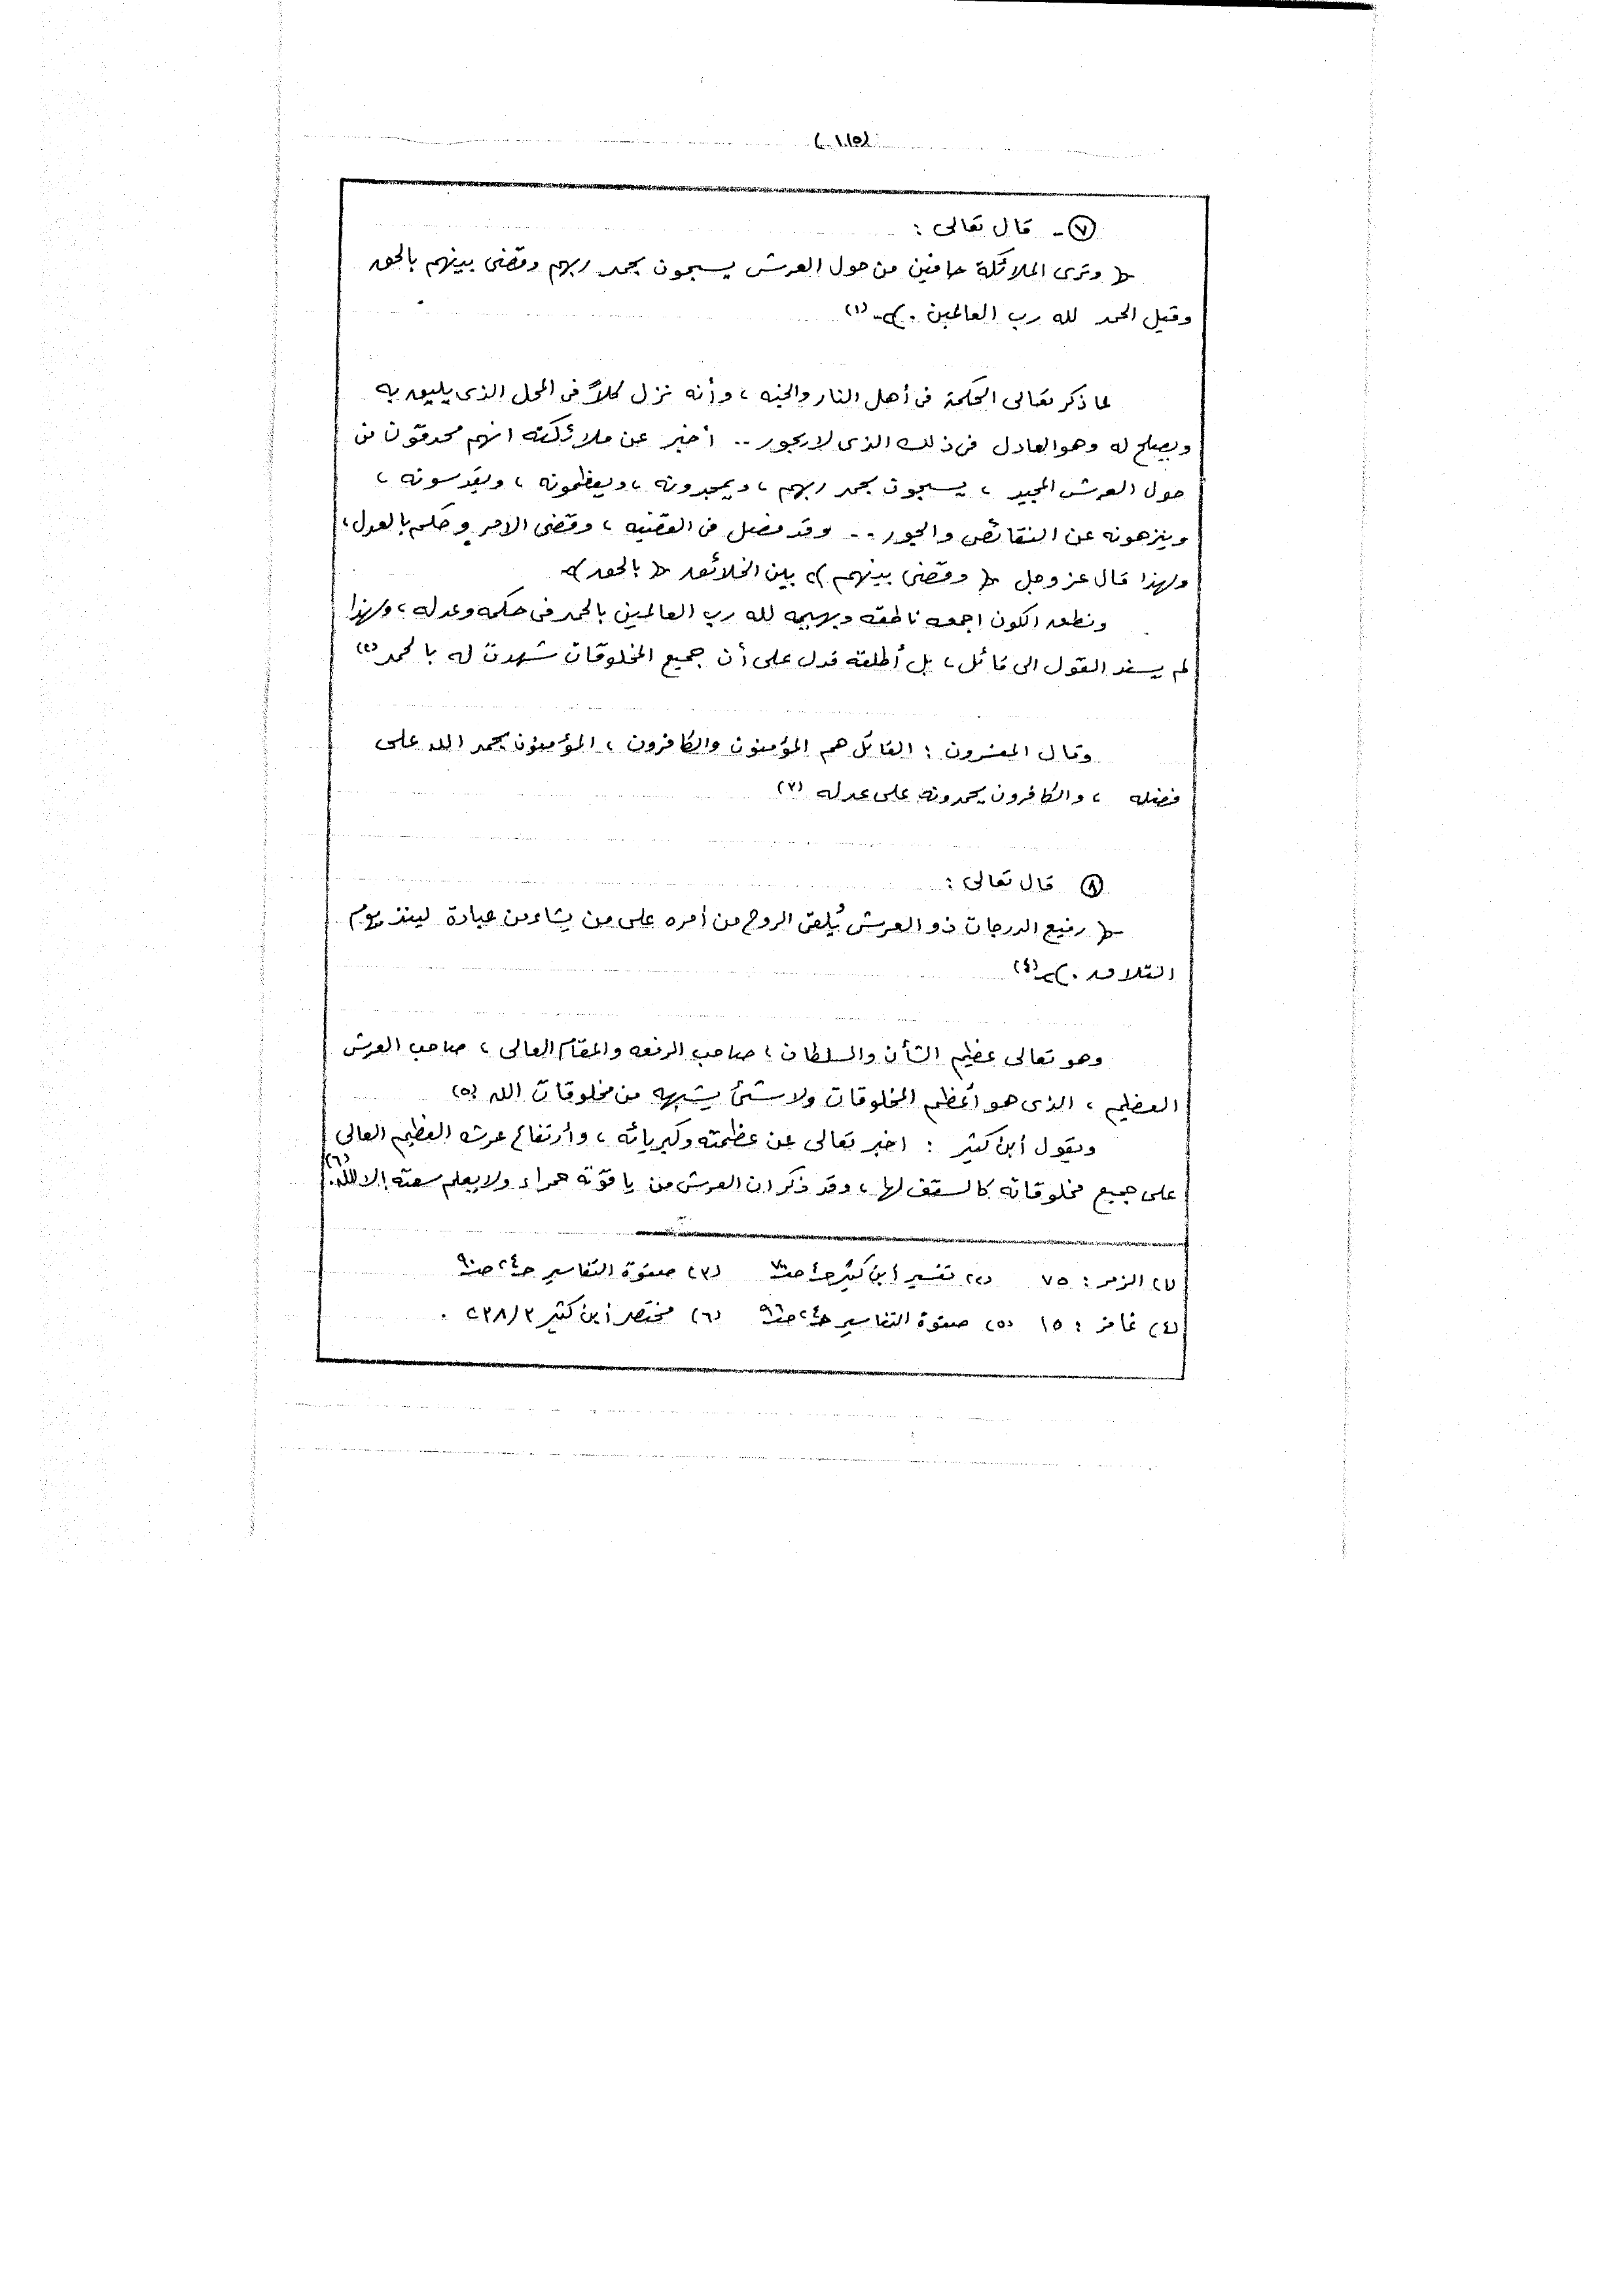 (١٠٥)
(٧)ـ قال تعالى :
﴿ وترى الملائكة حافين من حول العرش يسبحون بحمد ربهم وقضى بينهم بالحق
وقيل الحمد لله رب العالمين . ﴾ (١)
لما ذكر تعالى الحكمة فى أهل النار والجنه ، وأنه نزل كلاً فى المحل الذى يليق به
ويصلح له وهو العادل فى ذلك الذى لا يجور .. أخبر عن ملائكته انهم محدقون من
حول العرش المجيد ، يسبحون بحمد ربهم ، ويمجدونه ، ويعظمونه ، ويقدسونه ،
وينزهونه عن النقائص والجور .. وقد فصل فى القضيه ، وقضى الامر وحكم بالعدل ،
ولهذا قال عز وجل ﴿ وقضى بينهم ﴾ بين الخلائق ﴿ بالحق ﴾
ونطق الكون اجمعه ناطقه وبهيمه لله رب العالمين بالحمد فى حكمه وعدله ، ولهذا
لم يسند القول الى قائل ، بل أطلقه فدل على أن جميع المخلوقات شهدت له بالحمد (٢)
وقال المفسرون : القائل هم المؤمنون والكافرون ، المؤمنون بحمد الله على
فضله ، والكافرون يحمدونه على عدله (٣)
(٨) قال تعالى :
﴿ رفيع الدرجات ذو العرش يُلقى الروح من أمره على من يشاء من عبادة لينذر يوم
التلاق . ﴾ (٤)
وهو تعالى عظيم الشأن والسلطان ، صاحب الرفعه والمقام العالى ، صاحب العرش
العظيم ، الذى هو أعظم المخلوقات ولا شئ يشبهه من مخلوقات الله (٥)
ويقول أبن كثير : اخبر تعالى عن عظمته وكبريائه ، وأرتفاع عرشه العظيم العالى
على جميع مخلوقاته كالسقف لها ، وقد ذكر ان العرش من ياقوتة حمراء ولا يعلم سعته إلا الله . (٦)
(١) الزمر : ٧٥ (٢) تفسير أبن كثير ج٤ ص٧٠ (٣) صفوة التفاسير ج٢٤ ص٩٠
(٤) غافر : ١٥ (٥) صفوة التفاسير ج٢٤ ص٩٦ (٦) مختصر أبن كثير ٢٣٨/٣ .